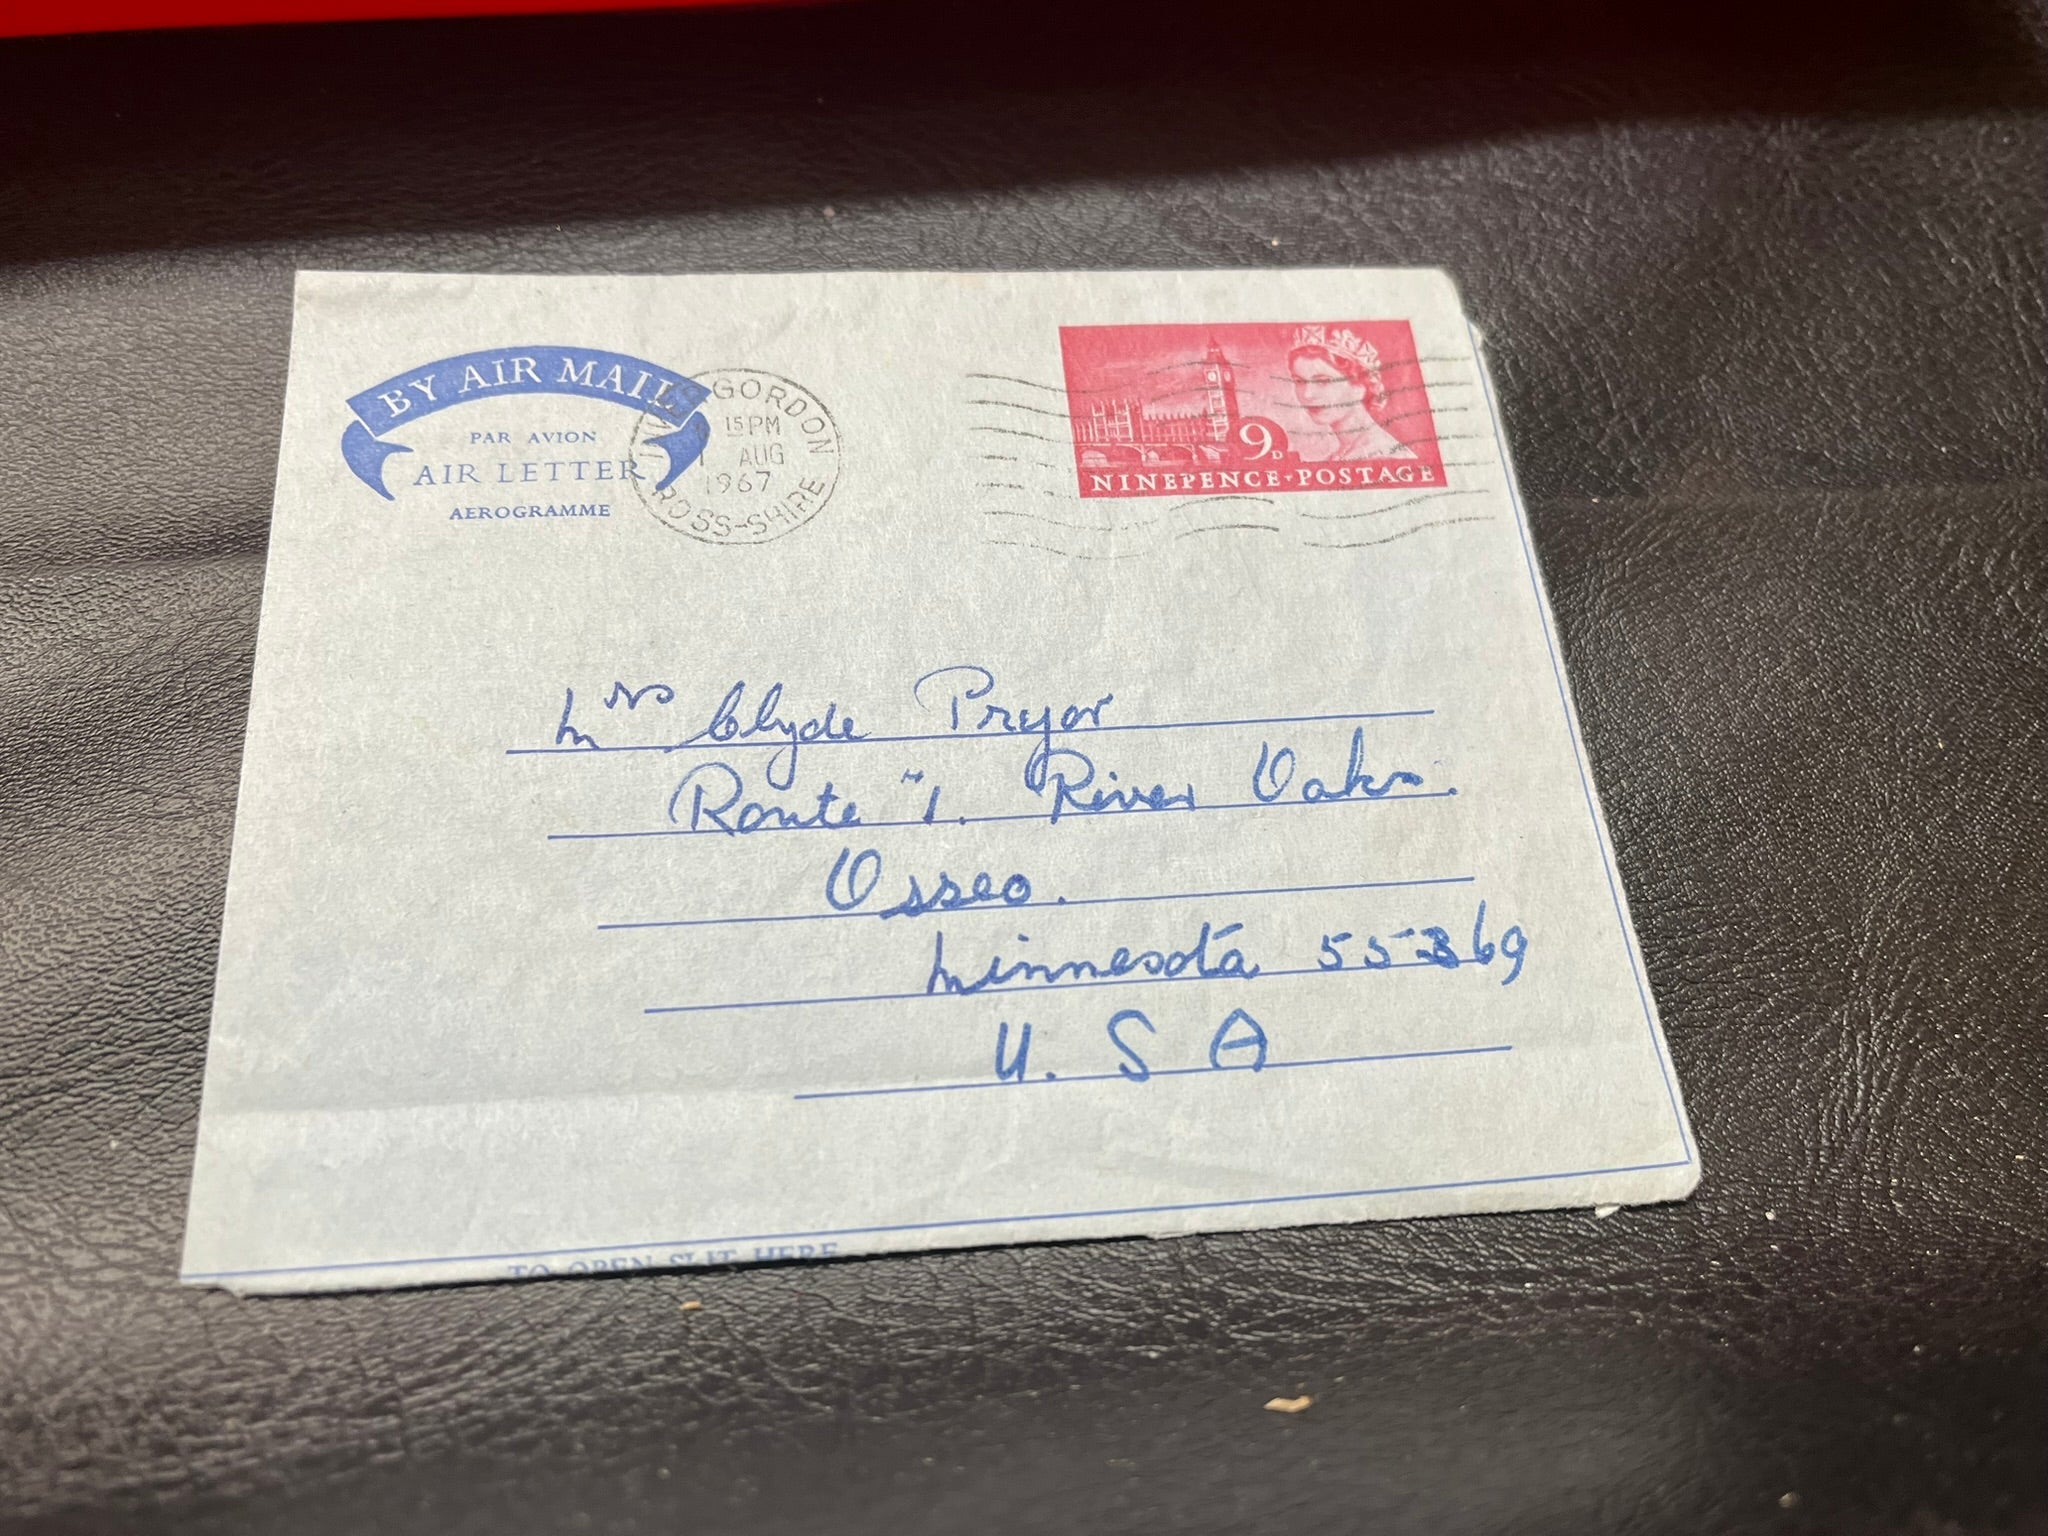 BY AIR MAIL
PAR AVION
AIR LETTER
AEROGRAMME
INVERGORDON
15 PM
1 AUG
1967
ROSS-SHIRE
9D
NINEPENCE·POSTAGE
Mrs Clyde Pryor
Route "1. River Oaks.
Osseo.
Minnesota 55369
U. S A
TO OPEN SLIT HERE